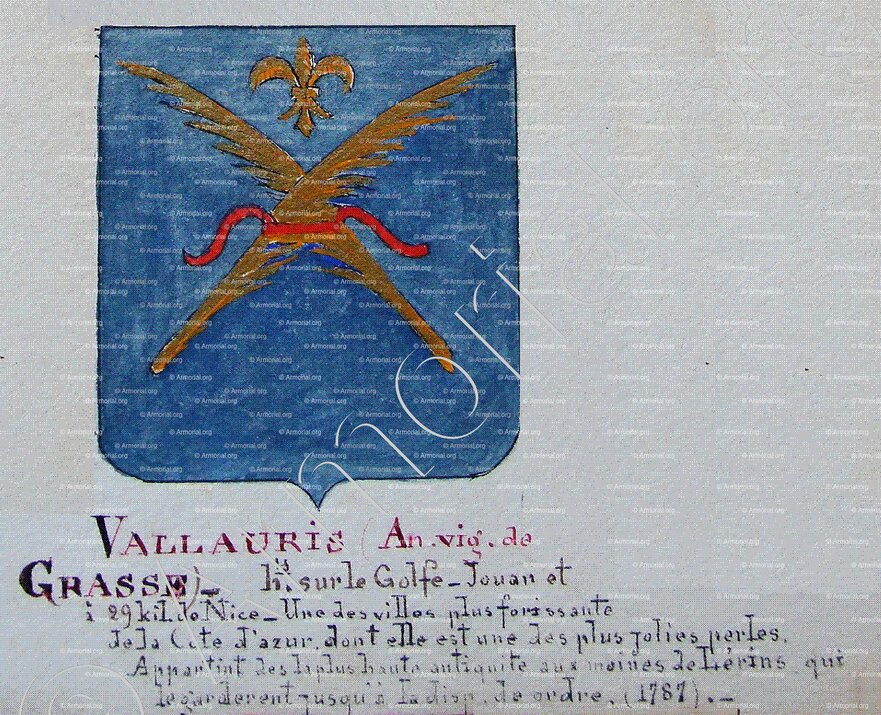 VALLAURIS (An. vig. de
GRASSE)_ his. sur le Golfe-Jouan et
à 29 kil. de Nice _ Une des villes plus forissante
de la Côte d'azur, dont elle est une des plus jolies perles.
Appartint des la plus haute antiquite aux moines de Lérins qui
le garderent jusqu'à la disp. de ordre. (1787). _
© Armorial.org